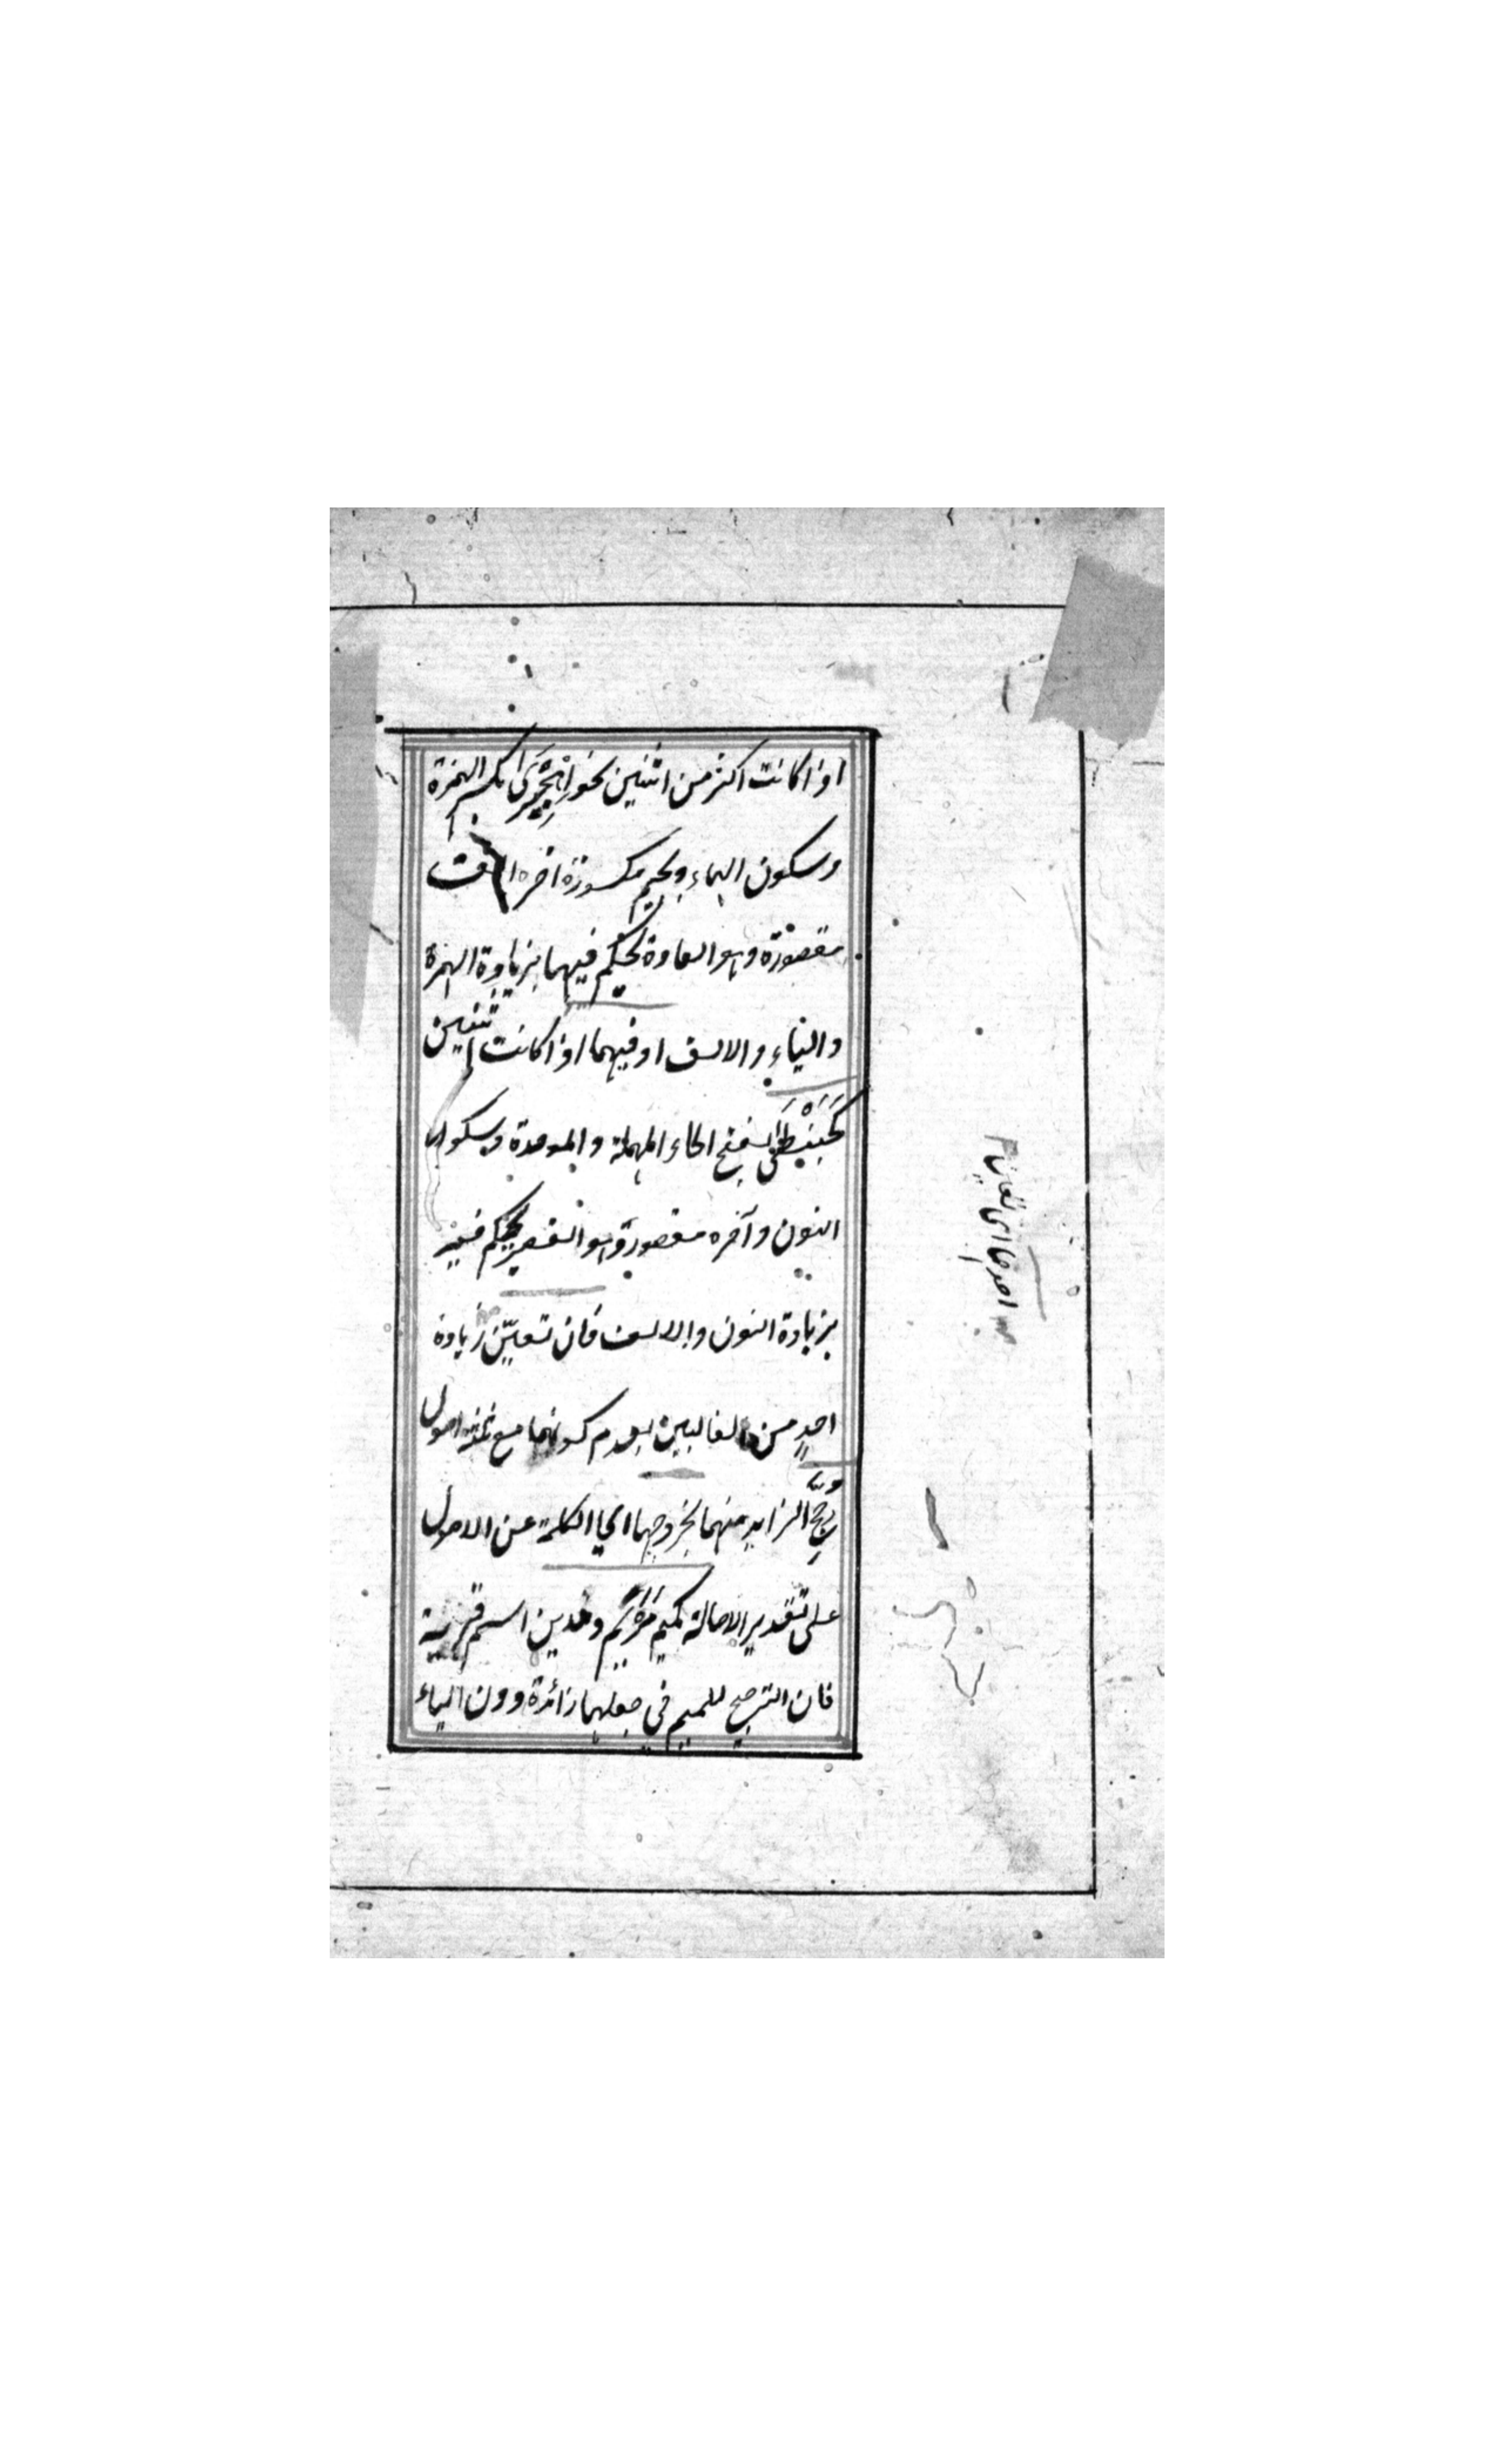 اذا كانت اكثر من اثنين نحو اِهْجِيْرَىٰ بكسر الهمزة
وسكون الهاء وجيم مكسورة اخره الف
مقصورة وهو العادة يحكم فيهما بزيادة الهمزة
والياء والالف او فيهما اذا كانت اثنين
كَحَبَنْطَىٰ بفتح الحاء المهملة والموحدة وسكون
النون وآخره مقصورة وهو القصير يحكم فيه
بزيادة النون والالف فان تعيّن زيادة
احدٍ من الغالبين بعدم كونهما مع ثلثة اصول
رجِّح الزايد منهما بخروجهما اي الكلمة عن الاصول
على تقدير الاصالة كميم مَرْيَم ومدين اسم قرية
فان الترجيح للميم في جعلها زائدة دون الياء